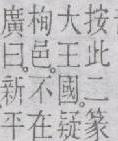 按此二篆
大王國。疑
栒邑。不在
廣曰。新平